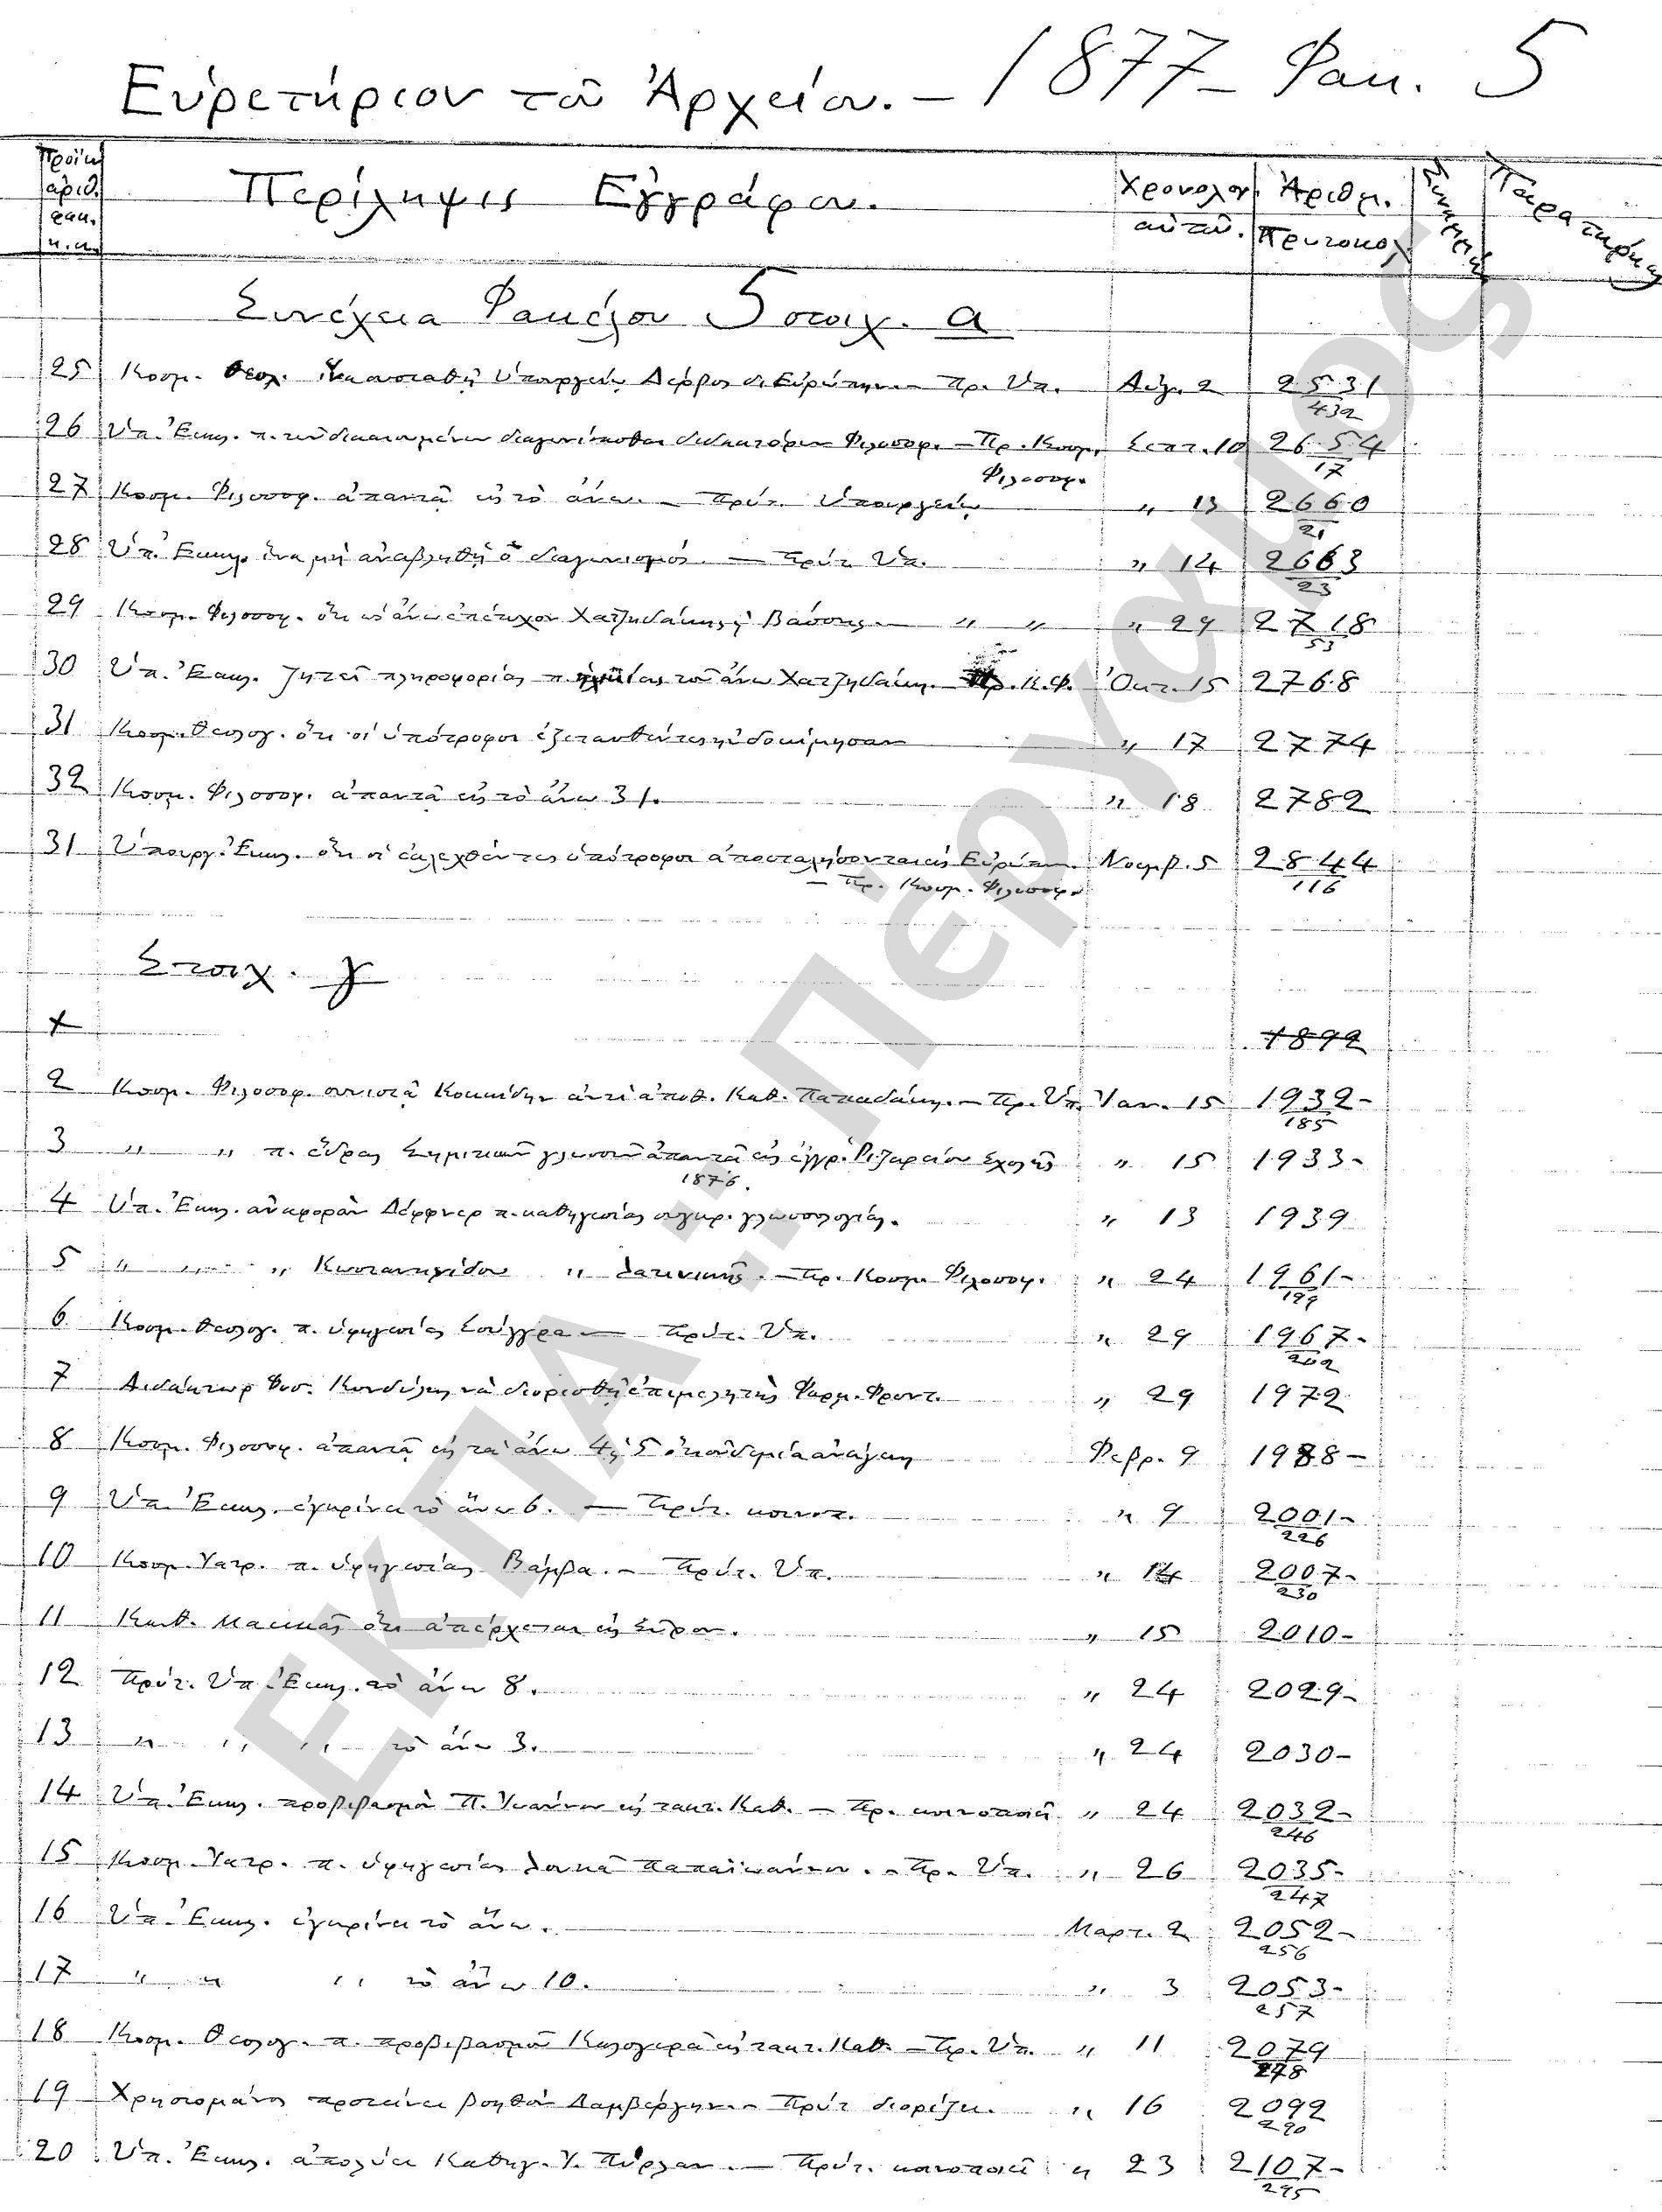 Εὑρετήριον τοῦ Ἀρχείου. — 1877 — Φακ. 5
ἀριθ. φακ.
Περίληψις Ἐγγράφου.
Χρονολογ. αὐτοῦ.
Ἀριθμ. Πρωτοκ.
Συνέχεια Φακέλου 5 στοιχ. α
25 Κοσμ. Θεολ. Ὑπουργεῖον Δέρβος εἰς Εὐρώπην — Πρ. Ὑπ. Αὐγ. 2 2531 432
26 Ὑπ. Ἐκκλ. π. διδακτόρων Φιλοσοφ. — Πρ. Κοσμ. Φιλοσοφ. Σεπτ. 10 2654 17
27 Κοσμ. Φιλοσοφ. ἀπαντᾷ εἰς τὸ ἄνω. — Πρύτ. Ὑπουργείῳ „ 13 2660 21
28 Ὑπ. Ἐκκλ. ἵνα μὴ ἀναβληθῇ ὁ διαγωνισμός. — Πρύτ. Ὑπ. „ 14 2663 23
29 Κοσμ. Φιλοσοφ. ὅτι ὡς ἄνω ἐπέτυχον Χατζηδάκης, Βάσσης — „ „ „ 29 2718 53
30 Ὑπ. Ἐκκλ. ζητεῖ πληροφορίας π. ἡλικίας τοῦ ἄνω Χατζηδάκη. — Πρ. Κ. Φ. Ὀκτ. 15 2768
31 Κοσμ. Θεολογ. ὅτι οἱ ὑπότροφοι ἐξετασθέντες ηὐδοκίμησαν „ 17 2774
32 Κοσμ. Φιλοσοφ. ἀπαντᾷ εἰς τὸ ἄνω 31. „ 18 2782
31 Ὑπουργ. Ἐκκλ. ὅτι οἱ ἐκλεχθέντες ὑπότροφοι ἀποσταλήσονται εἰς Εὐρώπ. Νοεμβ. 5 2844 116
— Πρ. Κοσμ. Φιλοσοφ.
Στοιχ. γ
1 1892
2 Κοσμ. Φιλοσοφ. συνιστᾷ Κοκκίδην ἀντὶ ἀποθ. Καθ. Παπαδάκη. — Πρ. Ὑπ. Ἰαν. 15 1932- 185
3 „ „ π. ἕδρας Σημιτικῶν γλωσσῶν ἀπαντᾷ εἰς ἔγγρ. Ῥιζαρείου Σχολῆς „ 15 1933-
1876.
4 Ὑπ. Ἐκκλ. ἀναφορὰν Δέφφνερ π. καθηγεσίας συγκρ. γλωσσολογίας. „ 13 1939
5 „ „ „ Κωνσταντινίδου „ Λατινικῆς. — Πρ. Κοσμ. Φιλοσοφ. „ 24 1961- 199
6 Κοσμ. Θεολογ. π. ὑφηγεσίας Σούγγρα — Πρύτ. Ὑπ. „ 29 1967- 202
7 Διδάκτωρ Φυσ. Κονδύλης νὰ διορισθῇ ἐπιμελητὴς Φαρμ. Φροντ. „ 29 1972
8 Κοσμ. Φιλοσοφ. ἀπαντᾷ εἰς τὰ ἄνω 4, 5 ὅτι οὐδεμία ἀνάγκη Φεβρ. 9 1988-
9 Ὑπ. Ἐκκλ. ἐγκρίνει τὸ ἄνω 6. — Πρύτ. κοινοπ. „ 9 2001- 226
10 Κοσμ. Ἰατρ. π. ὑφηγεσίας Βάμβα. — Πρύτ. Ὑπ. „ 14 2007- 230
11 Καθ. Μακκᾶς ὅτι ἀπέρχεται εἰς Σῦρον. „ 15 2010-
12 Πρύτ. Ὑπ. Ἐκκλ. τὸ ἄνω 8. „ 24 2029-
13 „ „ „ τὸ ἄνω 3. „ 24 2030-
14 Ὑπ. Ἐκκλ. προβιβασμὸν Π. Ἰωάννου εἰς τακτ. Καθ. — Πρ. κοινοποιεῖ „ 24 2032- 246
15 Κοσμ. Ἰατρ. π. ὑφηγεσίας Λουκᾶ Παπαϊωάννου. — Πρ. Ὑπ. „ 26 2035- 247
16 Ὑπ. Ἐκκλ. ἐγκρίνει τὸ ἄνω. Μαρτ. 2 2052- 256
17 „ „ „ τὸ ἄνω 10. „ 3 2053- 257
18 Κοσμ. Θεολογ. π. προβιβασμοῦ Καλογερᾶ εἰς τακτ. Καθ. — Πρ. Ὑπ. „ 11 2079 278
19 Χρηστομάνος προτείνει βοηθὸν Δαμβέργην. — Πρύτ. διορίζει. „ 16 2092 290
20 Ὑπ. Ἐκκλ. ἀπολύει Καθηγ. Ἰ. Πύρλαν. — Πρύτ. κοινοποιεῖ „ 23 2107- 295
ΕΚΠΑ.: Πέργαμος